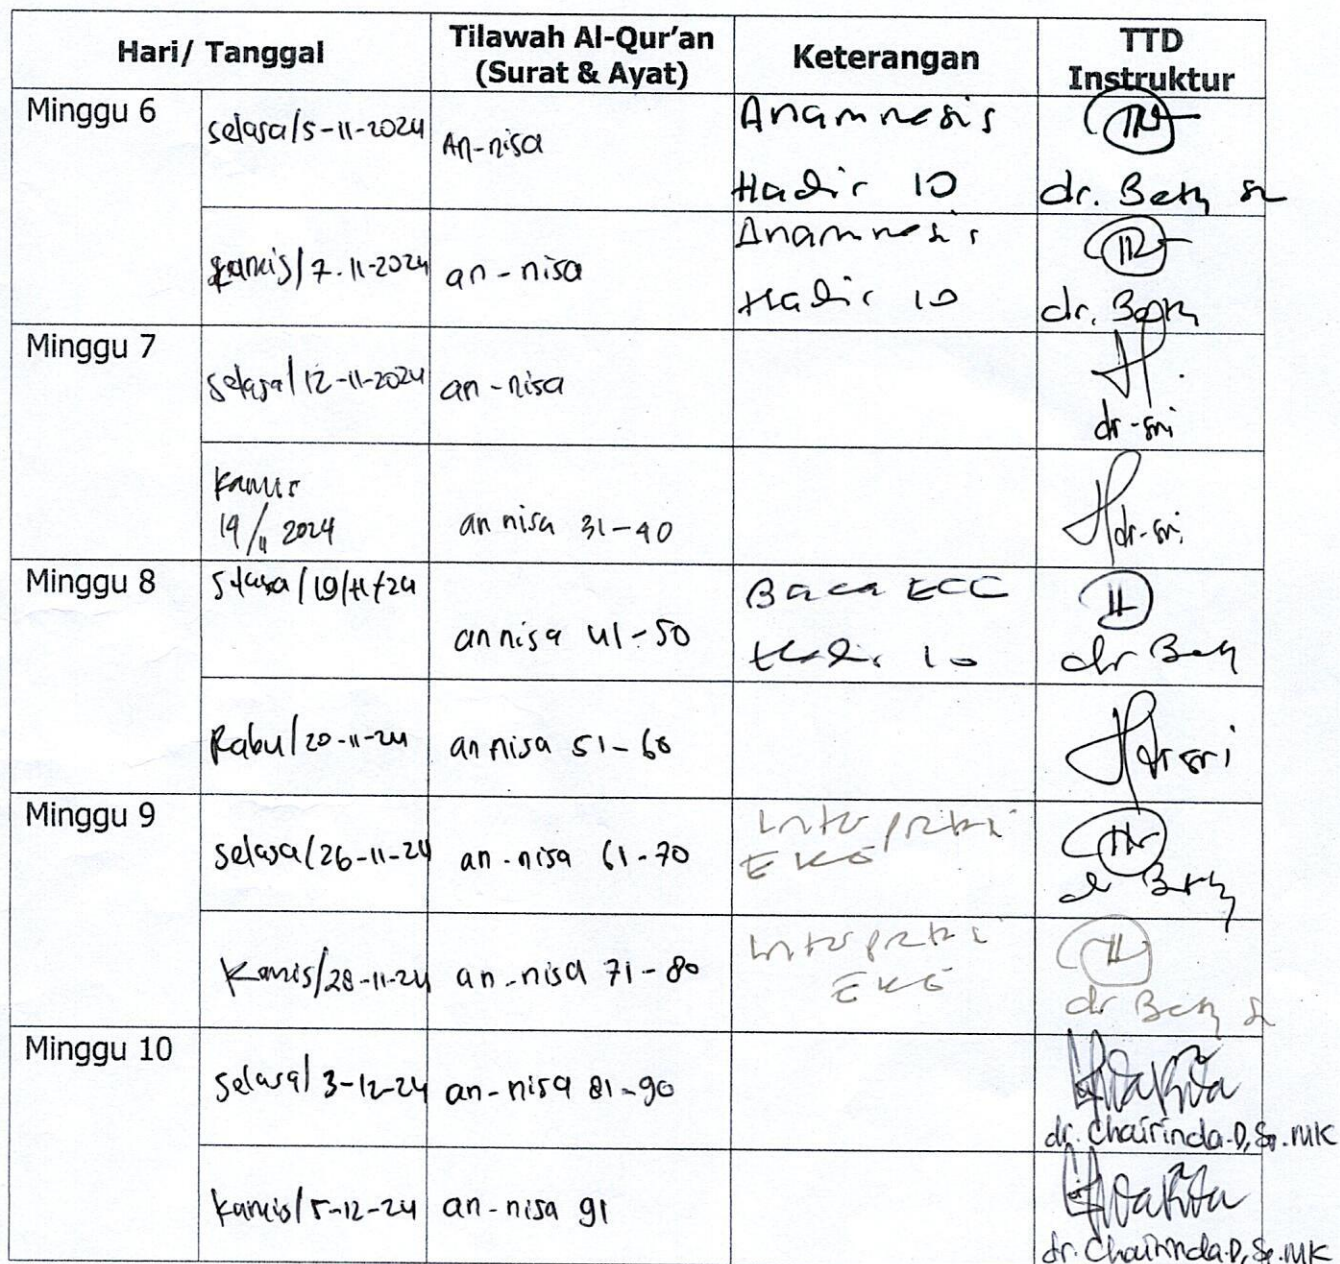 Hari/ Tanggal
Tilawah Al-Qur'an
(Surat & Ayat)
Keterangan
TTD
Instruktur
Minggu 6
selasa/5-11-2024
An-nisa
Anamnesis
Hadir 10
dr. Betty
kamis/7-11-2024
an-nisa
Anamnesis
Hadir 10
dr. Betty
Minggu 7
selasa/12-11-2024
an-nisa
dr-sri
Kamis
14/11 2024
an nisa 31-40
dr-sri
Minggu 8
selasa/19/11/24
an nisa 41-50
Baca ECG
Hadir 10
dr Betty
Rabu/20-11-24
an nisa 51-60
dr sri
Minggu 9
selasa/26-11-24
an-nisa 61-70
EKG
Kamis/28-11-24
an-nisa 71-80
EKG
dr Betty
Minggu 10
selasa/3-12-24
an-nisa 81-90
dr. Chairinda.D, Sp.MK
kamis/5-12-24
an-nisa 91
dr. Chairinda.D, Sp.MK